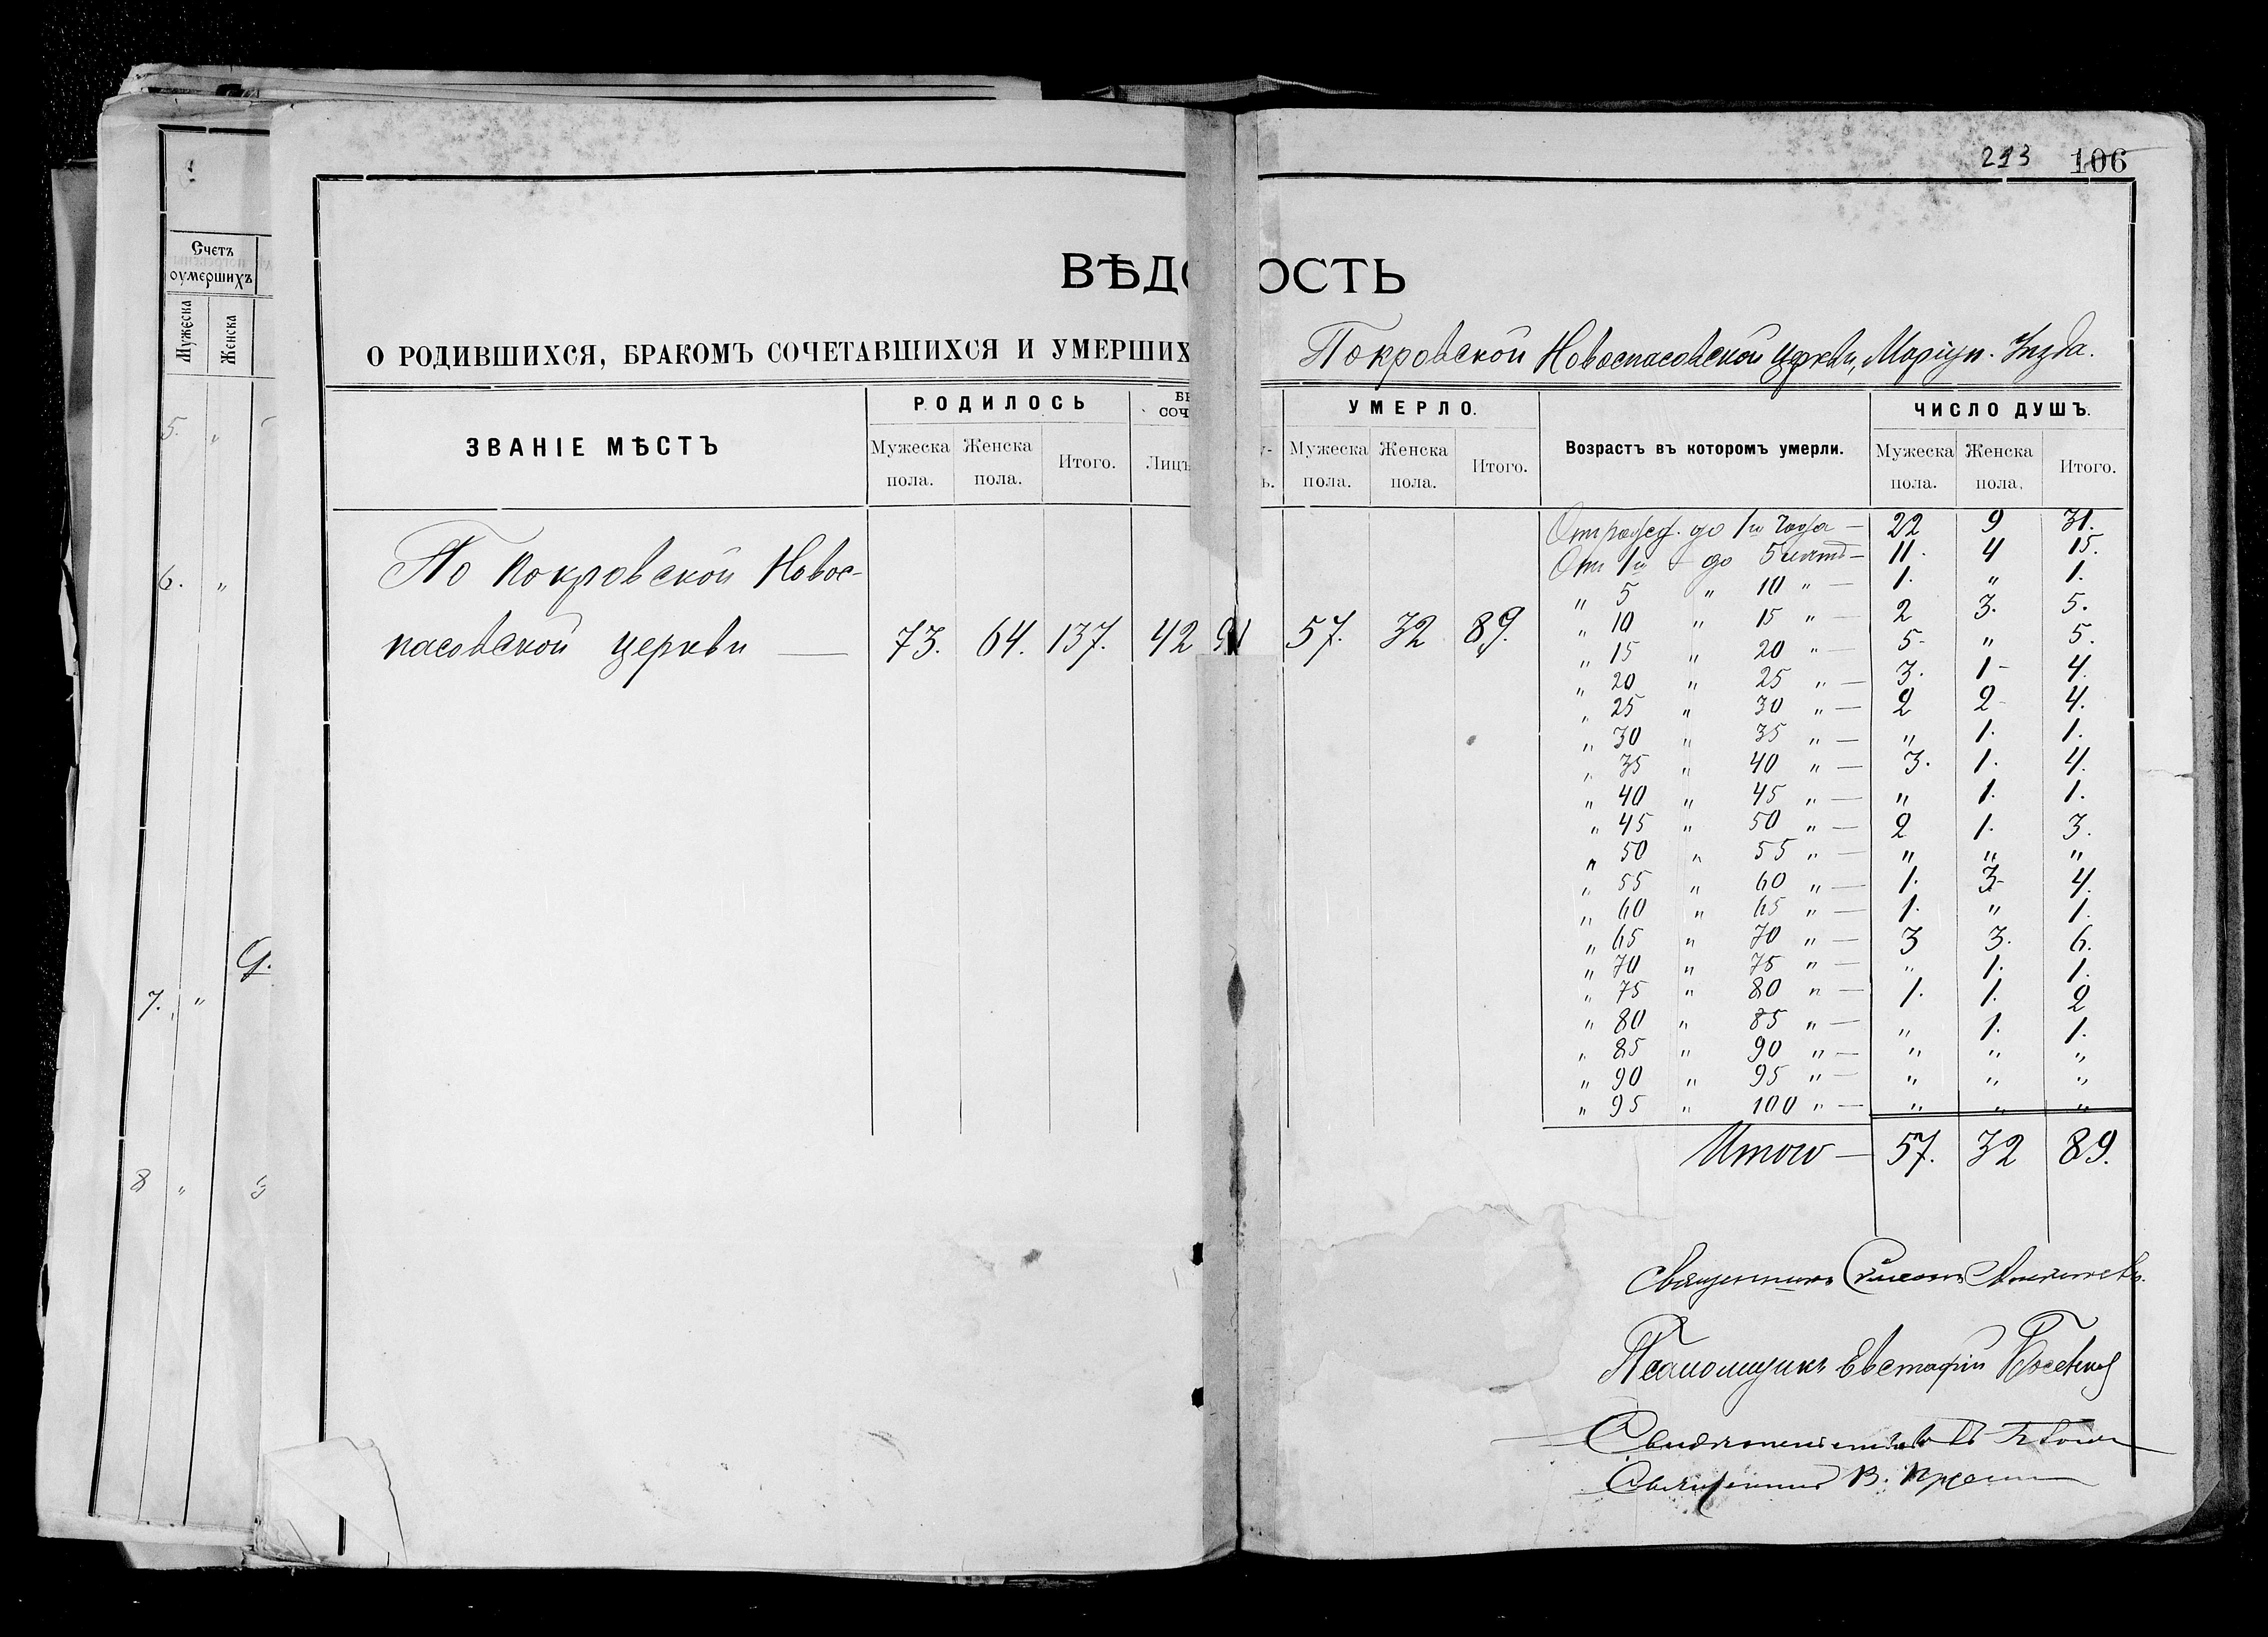 213 106
ВѢД ОСТЬ
О РОДИВШИХСЯ, БРАКОМЪ СОЧЕТАВШИХСЯ И УМЕРШИХ Покровской Новоспасовской церкви, Маріуп. Уѣзда.
Счетъ
оумершихъ
Мужеска Женска
5. "
6. "
7. "
8 "
ЗВАНІЕ МѢСТЪ
РОДИЛОСЬ
Мужеска пола. Женска пола. Итого.
СОЧ
Лицъ
УМЕРЛО.
Мужеска пола. Женска пола. Итого.
Возрастъ въ которомъ умерли.
ЧИСЛО ДУШЪ.
Мужеска пола. Женска пола. Итого.
По Покровской Новос-
пасовской церкви — 73. 64. 137. 42 57. 32 89.
От рожд. до 1го года — 22 9 31.
От 1го до 5 лѣтъ — 11. 4 15.
" 5 " 10 " — 1. " 1.
" 10 " 15 " — 2 3. 5.
" 15 " 20 " — 5 " 5.
" 20 " 25 " — 3. 1 4.
" 25 " 30 " — 2 2 4.
" 30 " 35 " — " 1. 1.
" 35 " 40 " — 3. 1. 4.
" 40 " 45 " — " 1. 1.
" 45 " 50 " — 2 1. 3.
" 50 " 55 " — " " "
" 55 " 60 " — 1. 3 4.
" 60 " 65 " — 1. " 1.
" 65 " 70 " — 3 3. 6.
" 70 " 75 " — " 1. 1.
" 75 " 80 " — 1. 1. 2
" 80 " 85 " — " 1. 1.
" 85 " 90 " — " " "
" 90 " 95 " — " " "
" 95 " 100 " — " " "
Итого — 57. 32 89.
Священникъ Симеонъ
Псаломщикъ Евстафій
Священник В.